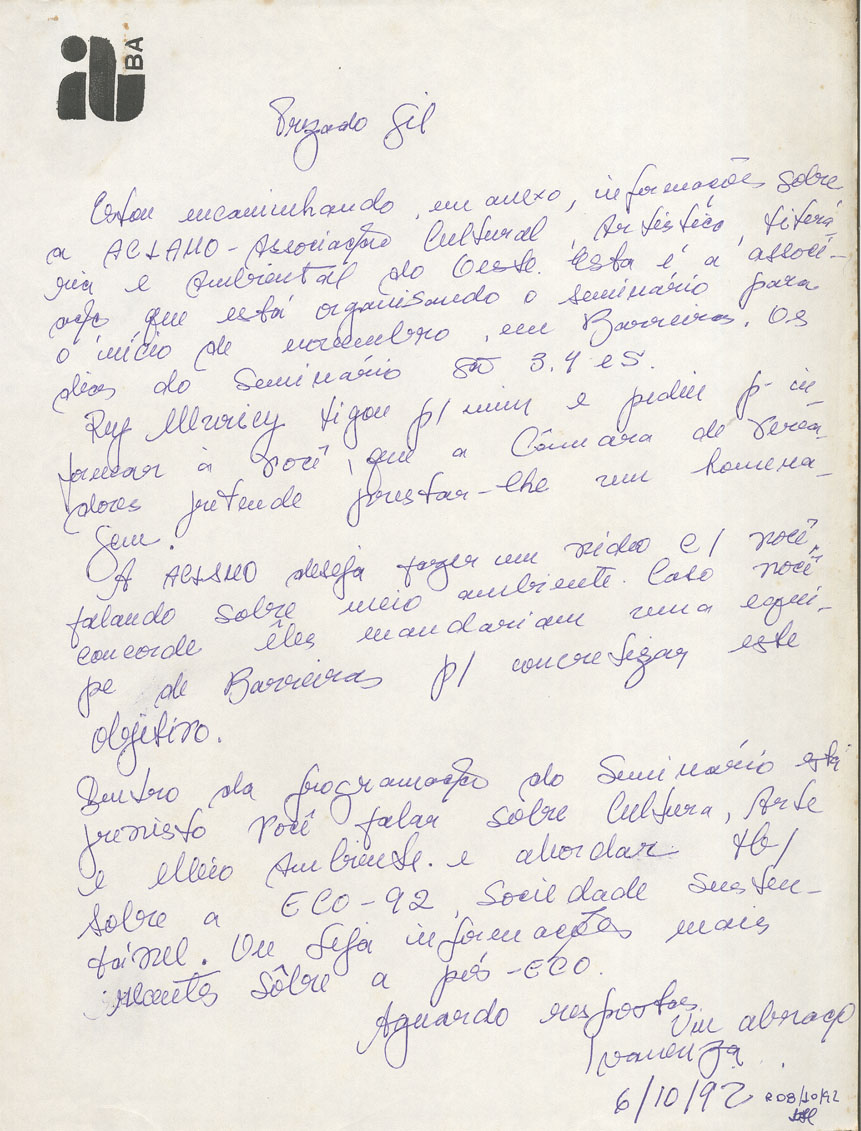 BA
Prezado Gil
Estou encaminhando, em anexo, informações sobre
a ACLAMO-Associação Cultural, Artística, Literá-
ria e Ambiental do Oeste. Esta é a associ-
ação que está organisando o seminário para
o início de novembro, em Barreiras. Os
dias do Seminário são 3.4 e 5.
Ruy Muricy ligou p/ mim e pediu p- in-
formar à você, que a Câmara de Verea-
dores pretende prestar-lhe um homena-
gem.
A ACLAMO deseja fazer um vídeo c/ você,
falando sobre meio ambiente. Caso você
concorde êles mandariam uma equi-
pe de Barreiras p/ concretizar este
objetivo.
Dentro da programação do Seminário está
previsto você falar sôbre Cultura, Arte
e Meio Ambiente. e abordar tb/
sobre a ECO-92, Sociedade Susten-
tável. Ou seja informações mais
sôbre a pós-ECO.
Aguardo respostas
Um abraço
6/10/92
R 08/10/92